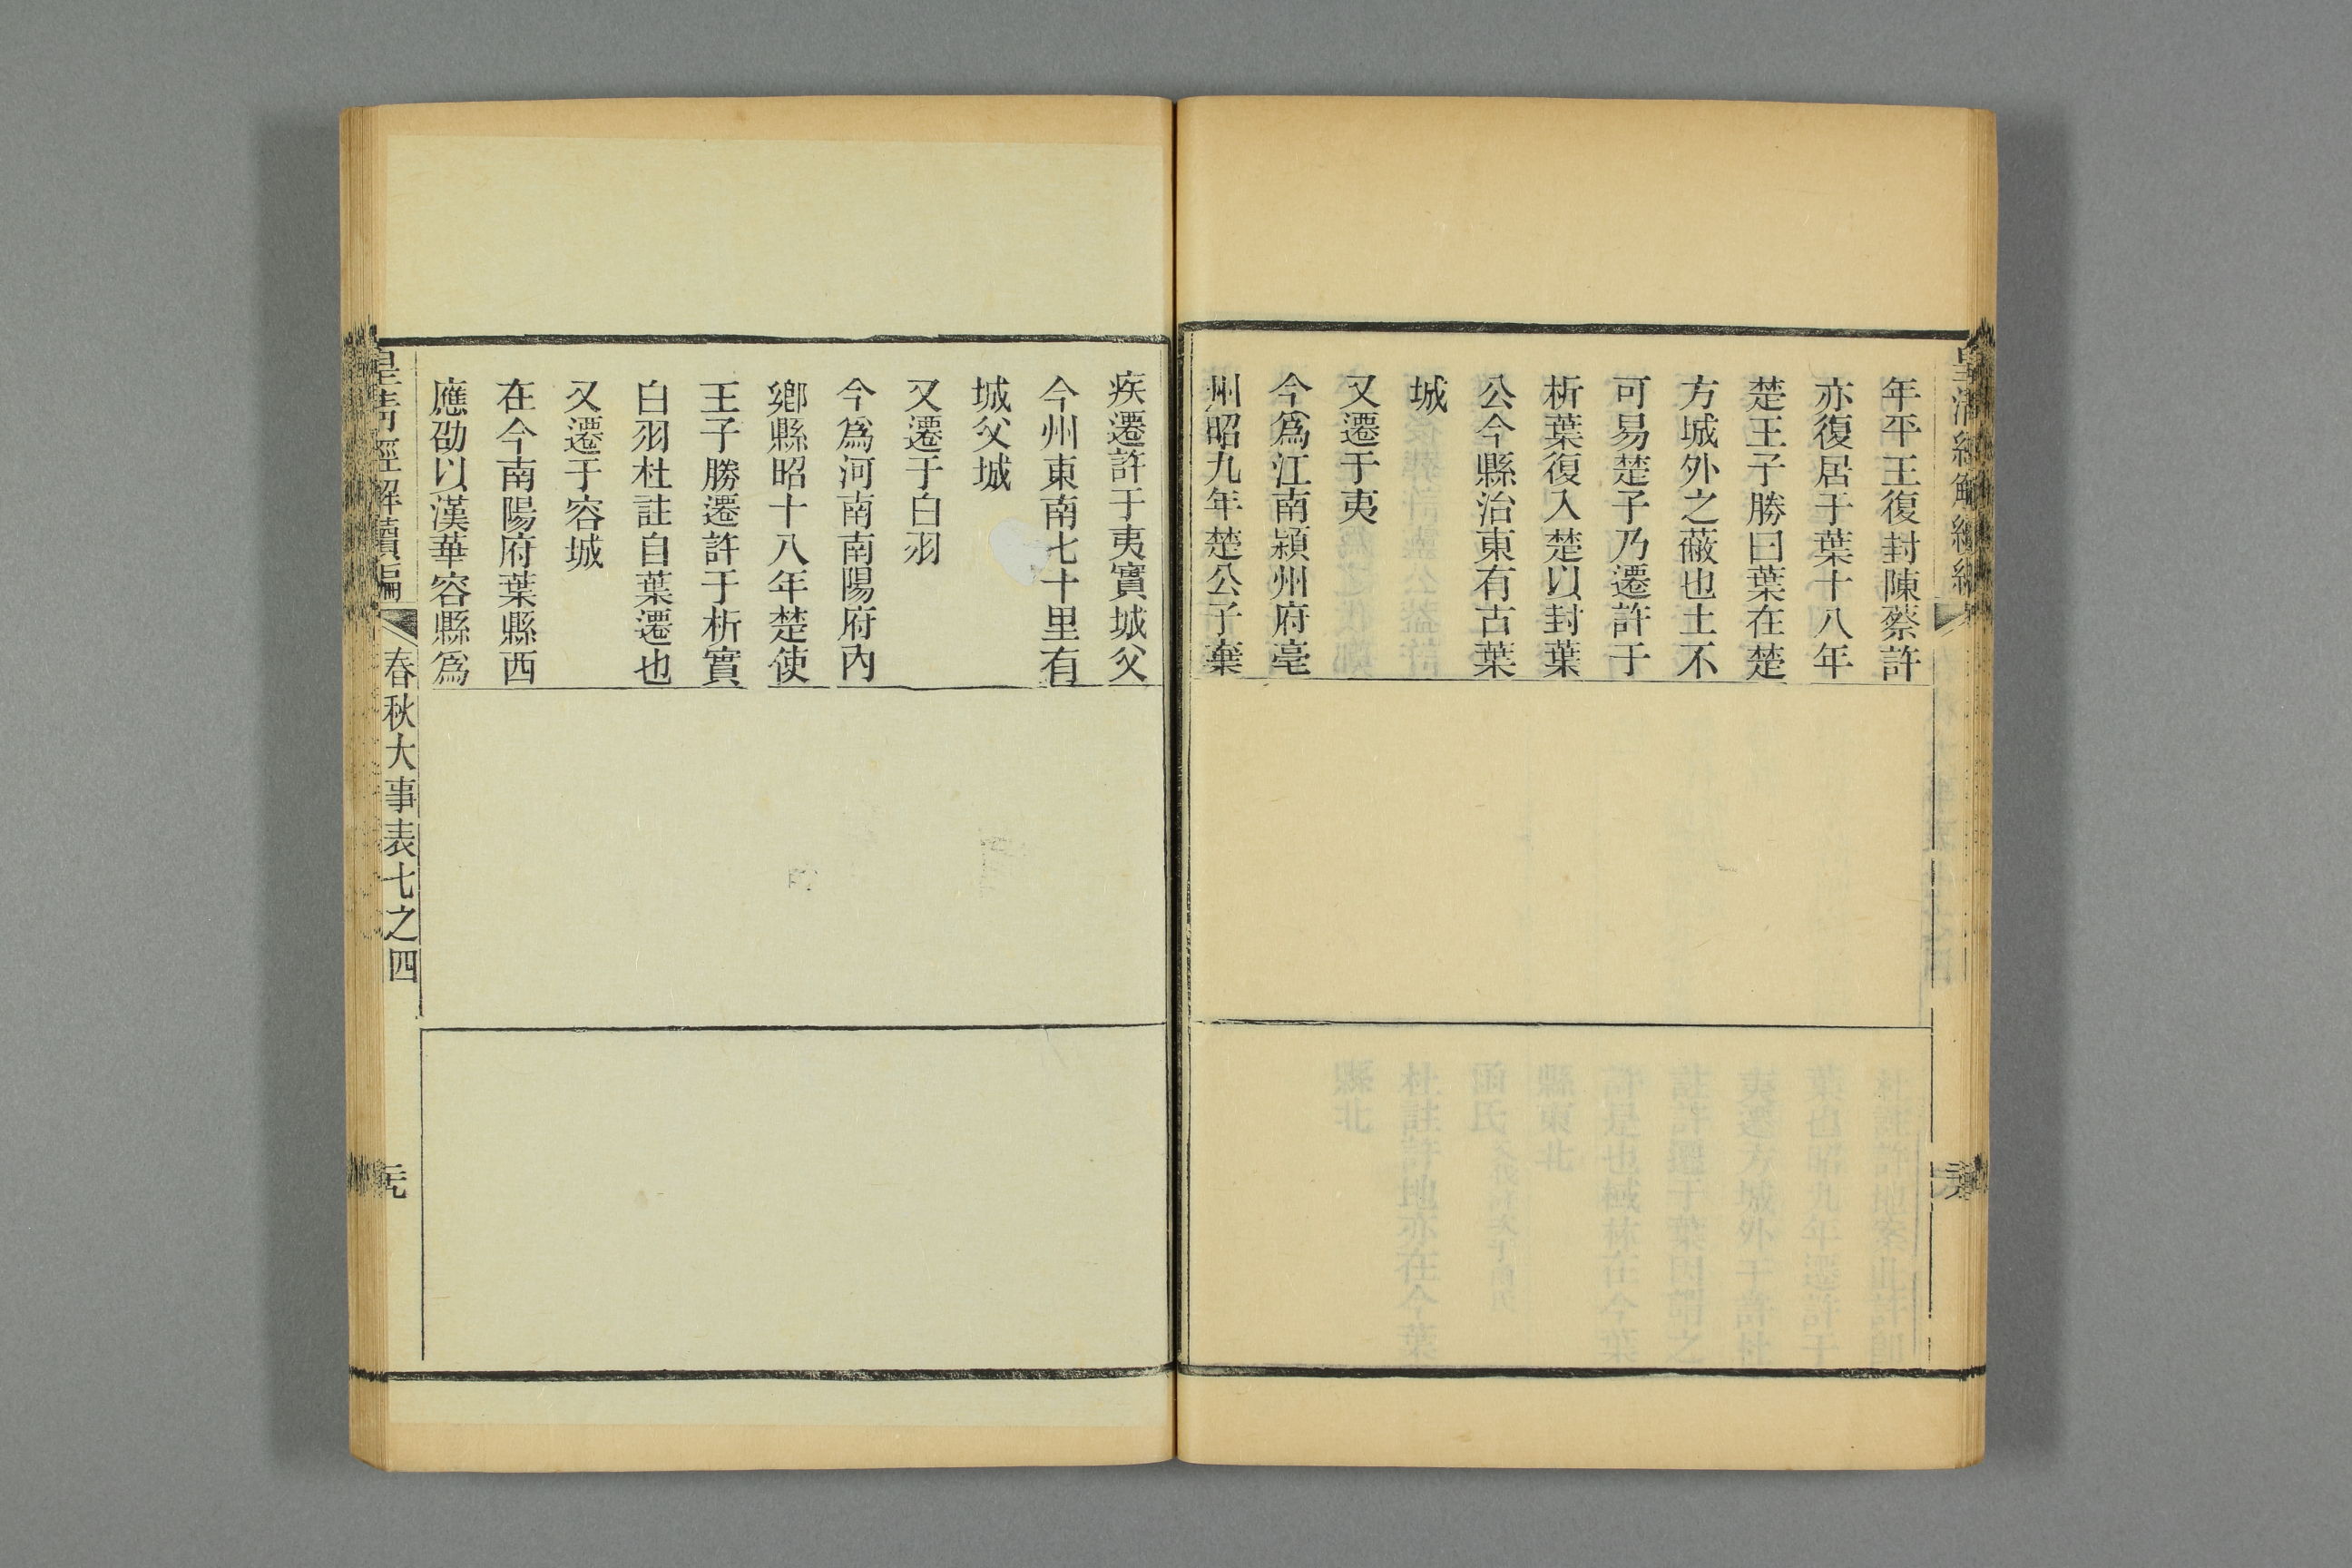 年平王復封陳蔡許
亦復居于葉十八年
楚王子勝曰葉在楚
方城外之蔽也土不
可易楚子乃遷許于
析葉復入楚以封葉
公今縣治東有古葉
城
又遷于夷
今爲江南潁州府亳
州昭九年楚公子棄
疾遷許于夷實城父
今州東南七十里有
城父城
又遷于白羽
今爲河南南陽府內
鄉縣昭十八年楚使
王子勝遷許于析實
白羽杜註自葉遷也
又遷于容城
在今南陽府葉縣西
應劭以漢華容縣爲
皇清經解續編 春秋大事表七之四